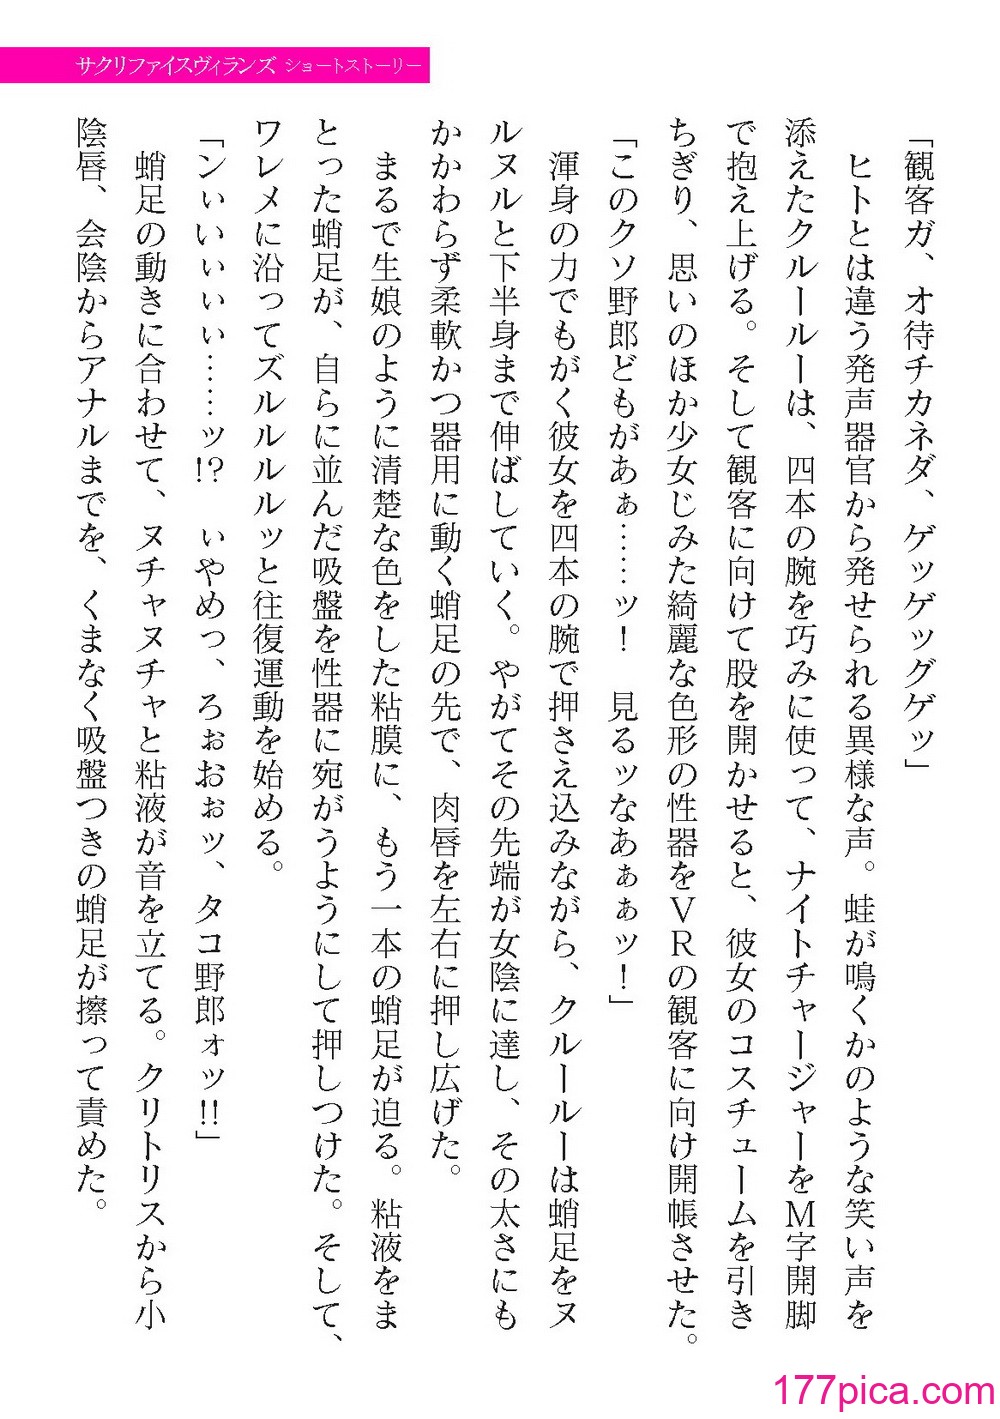 サクリファイスヴィランズ ショートストーリー
「観客ガ、オ待チカネダ、ゲッゲッグゲッ」
ヒトとは違う発声器官から発せられる異様な声。蛙が鳴くかのような笑い声を
添えたクルールーは、四本の腕を巧みに使って、ナイトチャージャーをM字開脚
で抱え上げる。そして観客に向けて股を開かせると、彼女のコスチュームを引き
ちぎり、思いのほか少女じみた綺麗な色形の性器をVRの観客に向け開帳させた。
「このクソ野郎どもがあぁ……ッ! 見るッなあぁぁッ!」
渾身の力でもがく彼女を四本の腕で押さえ込みながら、クルールーは蛸足をヌ
ルヌルと下半身まで伸ばしていく。やがてその先端が女陰に達し、その太さにも
かかわらず柔軟かつ器用に動く蛸足の先で、肉唇を左右に押し広げた。
まるで生娘のように清楚な色をした粘膜に、もう一本の蛸足が迫る。粘液をま
とった蛸足が、自らに並んだ吸盤を性器に宛がうようにして押しつけた。そして、
ワレメに沿ってズルルルルッと往復運動を始める。
「ンぃぃぃぃぃ……ッ!? ぃやめっ、ろぉおぉッ、タコ野郎ォッ!!」
蛸足の動きに合わせて、ヌチャヌチャと粘液が音を立てる。クリトリスから小
陰唇、会陰からアナルまでを、くまなく吸盤つきの蛸足が擦って責めた。
177pica.com